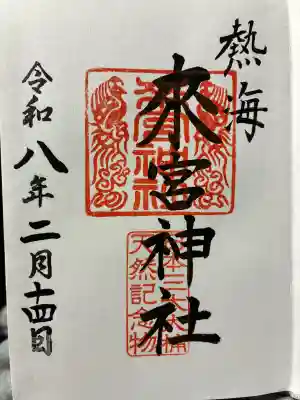 熱海
來宮神社
来宮神社
日本三大大楠
天然記念物
令和八年二月十四日